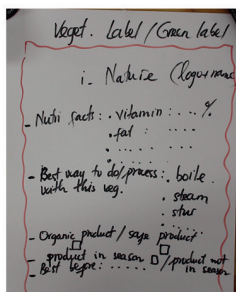 Veget. Label / Green label
i_ Nature (logo + name
- Nutri facts: . vitamin: . . . . %
. fat : . . . .
. . . . . . . . . .
. . . . . . . . .
- Best way to do/process: . boile
with this veg. . steam
. stur
. . . . .
- Organic product / safe product
- product in season □ / product not
in season
- Best before: . . . . . .